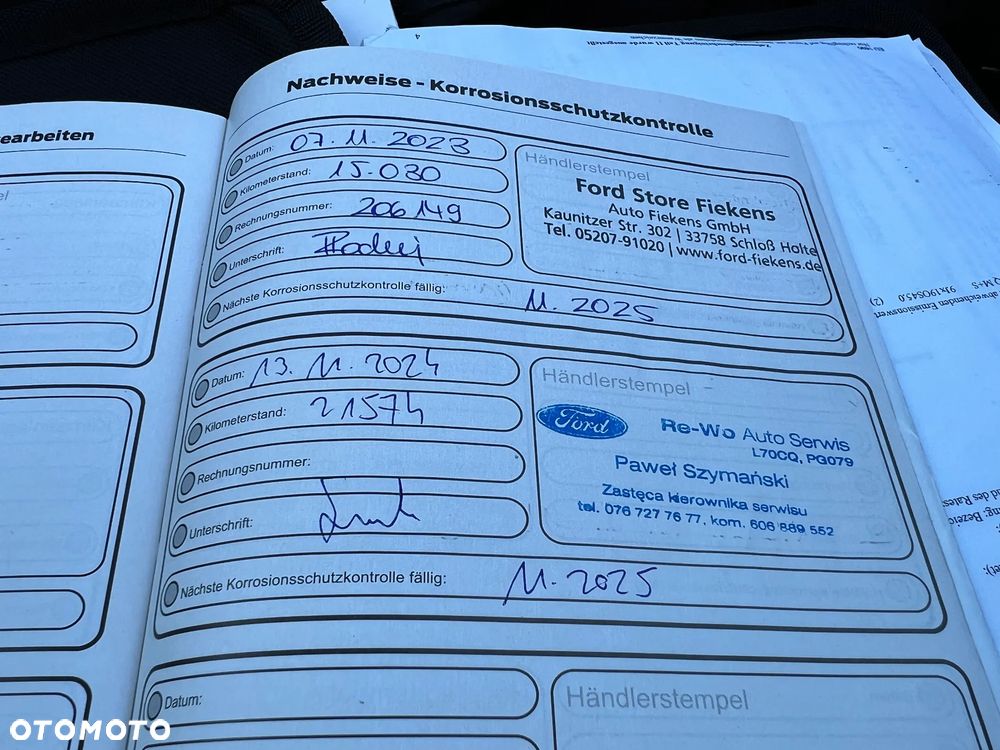 4
Zulassungsbescheinigung Teil II wurde ausgestellt
Nachweise - Korrosionsschutzkontrolle
earbeiten
Datum: 07. 11. 2023
Kilometerstand: 15.080
Rechnungsnummer: 206149
Unterschrift:
Nächste Korrosionsschutzkontrolle fällig: 11. 2025
Händlerstempel
Ford Store Fiekens
Auto Fiekens GmbH
Kaunitzer Str. 302 | 33758 Schloß Holte
Tel. 05207-91020 | www.ford-fiekens.de
Datum: 13. 11. 2024
Kilometerstand: 21574
Rechnungsnummer:
Unterschrift:
Nächste Korrosionsschutzkontrolle fällig: 11. 2025
Händlerstempel
Ford
Re-Wo Auto Serwis
L70CQ, PG079
Paweł Szymański
Zastęca kierownika serwisu
tel. 076 727 76 77, kom. 606 889 552
Datum:
Händlerstempel
abweichenden Emissionswert
(2)
OTOMOTO